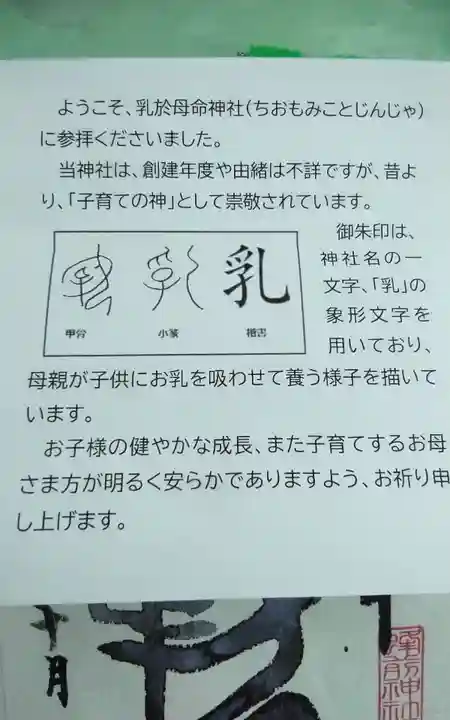 ようこそ、乳於母命神社(ちおもみことじんじゃ)
に参拝くださいました。
当神社は、創建年度や由緒は不詳ですが、昔よ
り、「子育ての神」として崇敬されています。
乳
甲骨
小篆
楷書
御朱印は、
神社名の一
文字、「乳」の
象形文字を
用いており、
母親が子供にお乳を吸わせて養う様子を描いて
います。
お子様の健やかな成長、また子育てするお母
さま方が明るく安らかでありますよう、お祈り申
し上げます。
十月